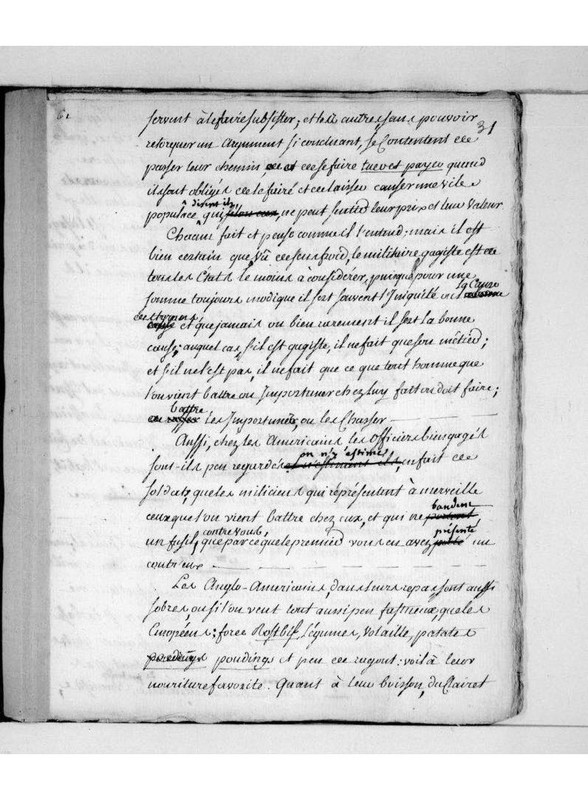 61
31
servent à le faire subsister; et les autres sans pouvoir
retorquer un argument si concluant, se contentent de
passer leur chemin et de se faire tuer et payer quand
ils sont obligés de le faire et de laisser causer une vile
populace, disent-ils, qui ne peut sentir leur prix et leur valeur
Chacun fait et pense comme il l'entend: mais il est
bien certain que vû de sens froid, le militaire gagiste est de
tous les Etats le moins à considérer, puisque pour une
somme toujours modique il sert souvent l'iniquité la Cause
des tyrans et que jamais ou bien rarement il sert la bonne
cause; auquel cas, s'il est gagiste, il ne fait que son métier;
et s'il ne l'est pas, il ne fait que ce que tout homme que
l'on vient battre ou importuner chez luy fait ou doit faire;
battre les Importuns, ou les Chasser
Aussi, chez les Americains les officiers bien gagés
sont-ils peu regardés on n'y estime, en fait de
soldats, que les miliciens qui représentent à merveille
ceux que l'on vient battre chez eux, et qui ne bandent
un fusil contre vous, que parce que le premier vous en avez présenté un
contr'eux
Les Anglo-Americains, dans leurs repas sont aussi
sobres, ou si l'on veut tout aussi peu fastueux que les
Européens: force Rostbif, Légumes, volaille, patates
poudings et peu de ragout: voilà leur
nouriture favorite. Quant à leur boisson, du Clairet